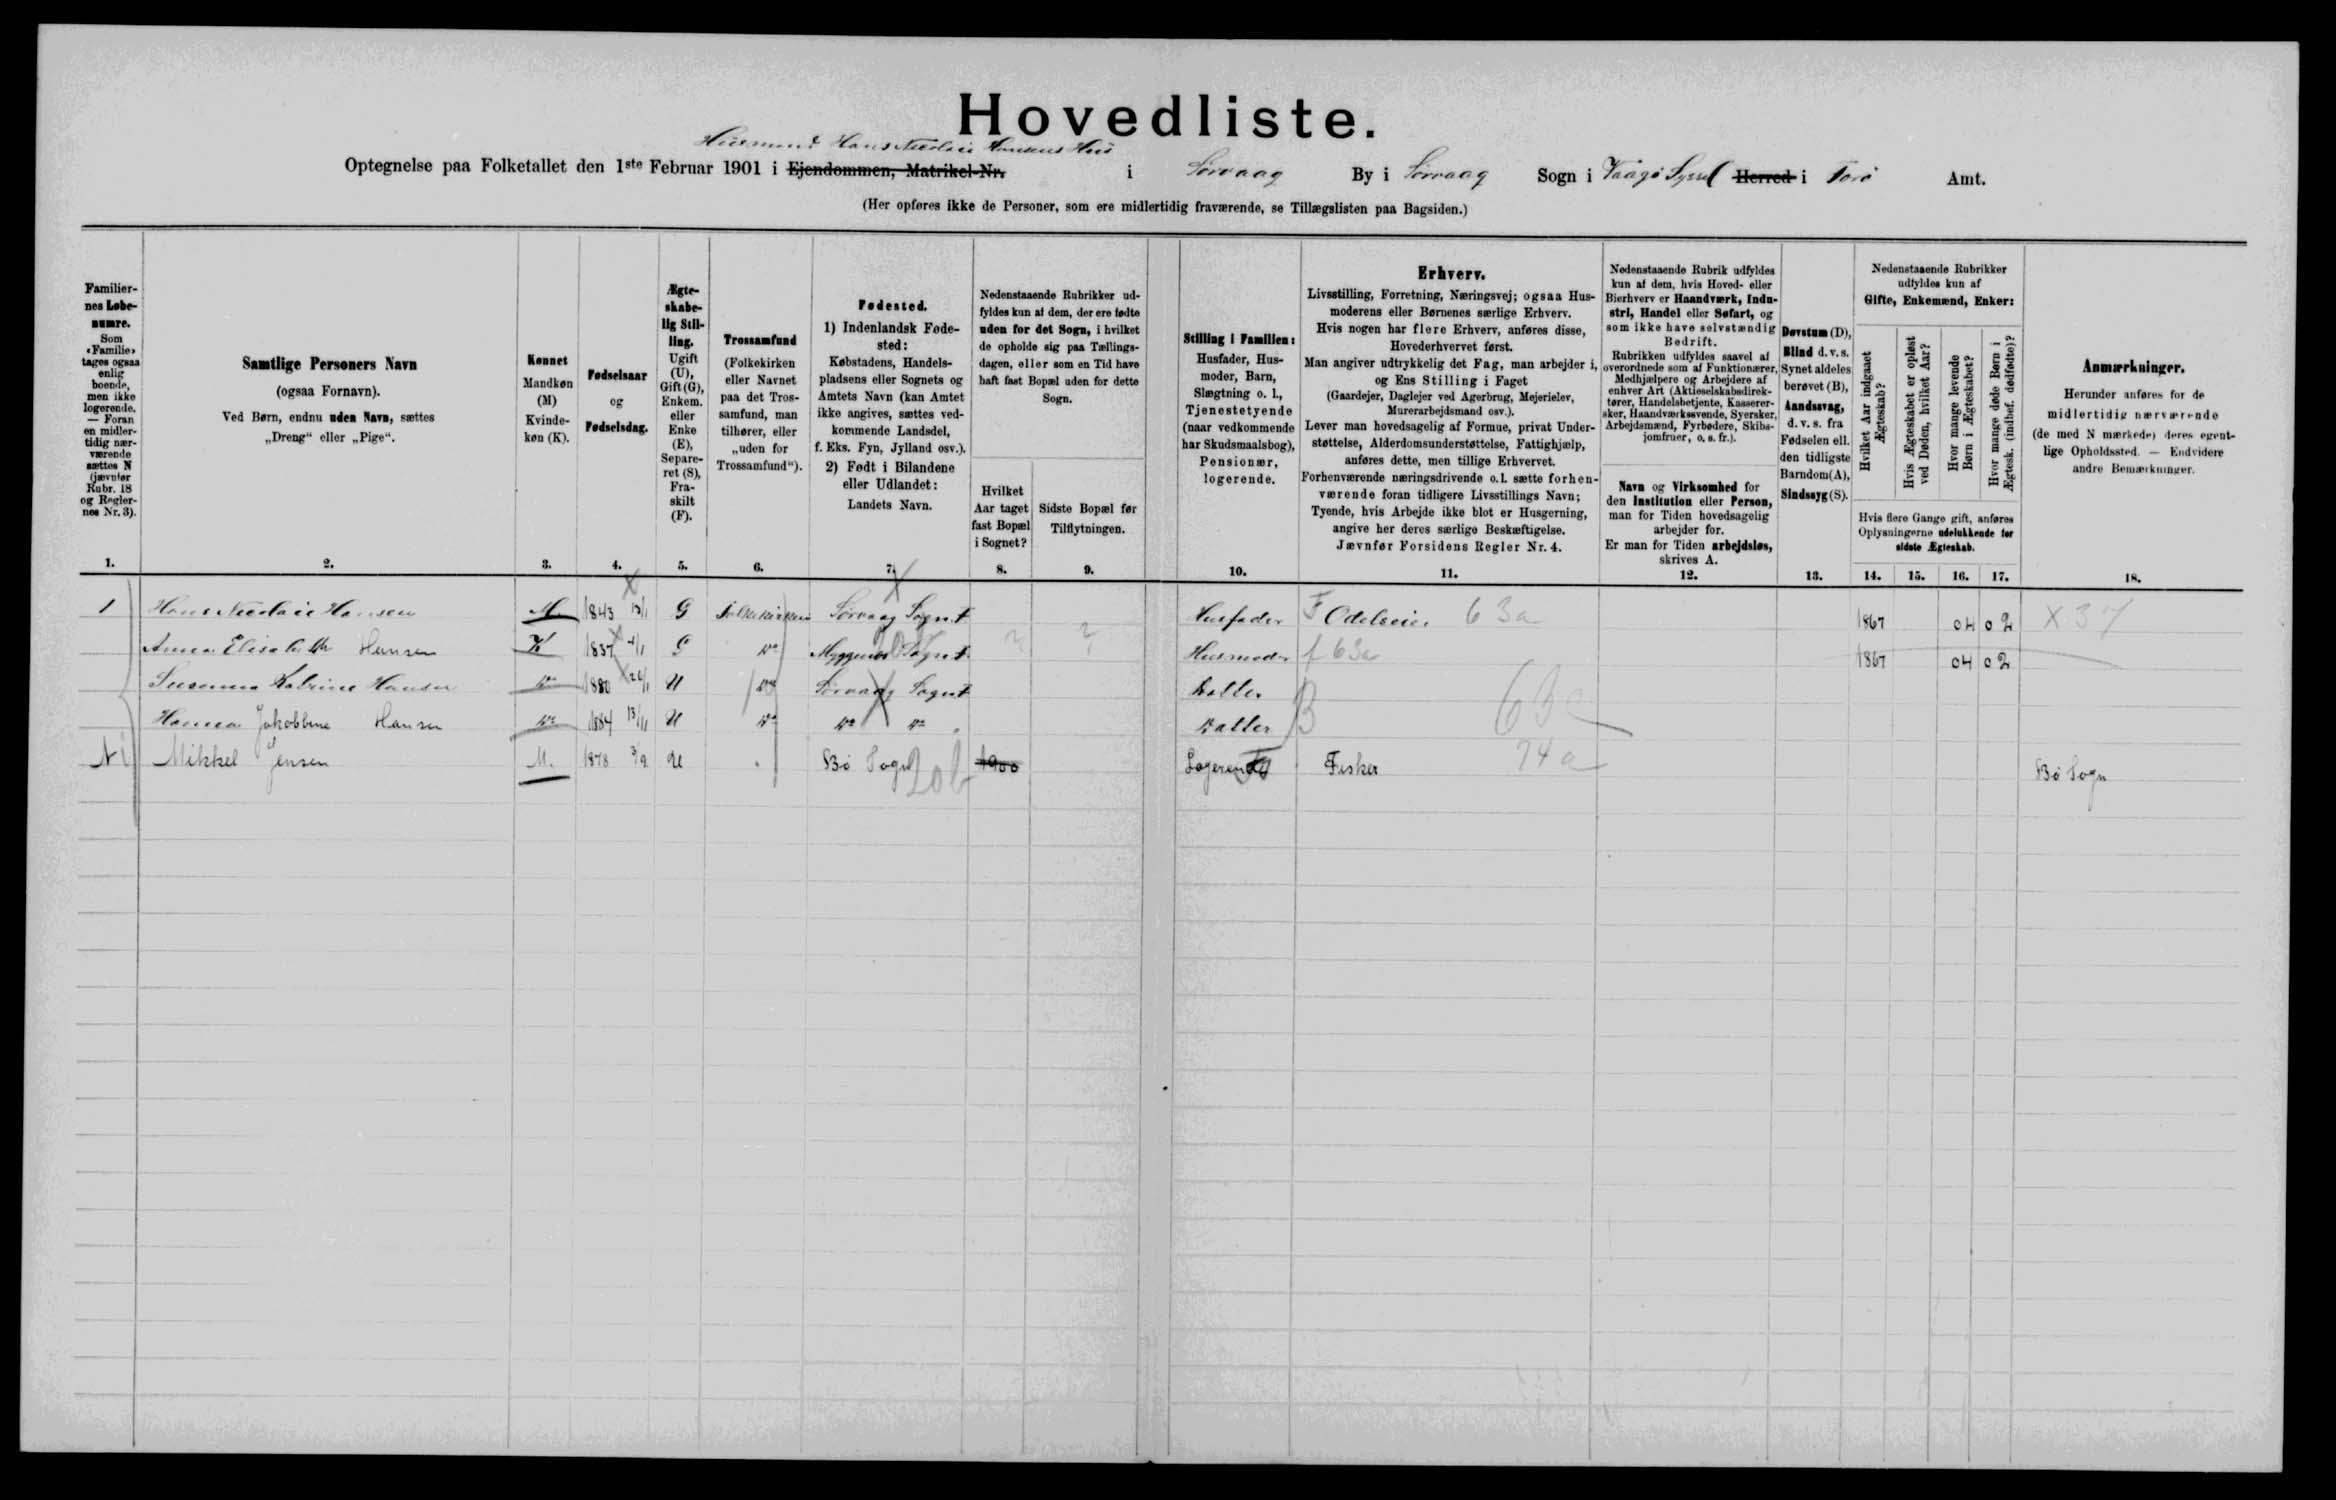 Hovedliste.
Husmand Hans Nicolai Hansens Hus
Optegnelse paa Folketallet den 1ste Februar 1901 i Ejendommen, Matrikel-Nr. i Sørvaag By i Sørvaag Sogn i Vaagø Syssel Herred i Færø Amt.
(Her opføres ikke de Personer, som ere midlertidig fraværende, se Tillægslisten paa Bagsiden.)
Familier-
nes Løbe-
numre.
Som
«Familie»
tages ogsaa
enlig
boende,
men ikke
logerende.
— Foran
en midler-
tidig nær-
værende
sættes N
(jævnfør
Rubr. 18
og Regler-
nes Nr. 3).
1.
Samtlige Personers Navn
(ogsaa Fornavn).
Ved Børn, endnu uden Navn, sættes
„Dreng“ eller „Pige“.
2.
Kønnet
Mandkøn
(M)
Kvinde-
køn (K).
3.
Fødselsaar
og
Fødselsdag.
4.
Ægte-
skabe-
lig Stil-
ling.
Ugift
(U),
Gift (G),
Enkem.
eller
Enke
(E),
Separe-
ret (S),
Fra-
skilt
(F).
5.
Trossamfund
(Folkekirken
eller Navnet
paa det Tros-
samfund, man
tilhører, eller
„uden for
Trossamfund“).
6.
Fødested.
1) Indenlandsk Føde-
sted:
Købstadens, Handels-
pladsens eller Sognets og
Amtets Navn (kan Amtet
ikke angives, sættes ved-
kommende Landsdel,
f. Eks. Fyn, Jylland osv.).
2) Født i Bilandene
eller Udlandet:
Landets Navn.
7.
Nedenstaaende Rubrikker ud-
fyldes kun af dem, der ere fødte
uden for det Sogn, i hvilket
de opholde sig paa Tællings-
dagen, eller som en Tid have
haft fast Bopæl uden for dette
Sogn.
Hvilket
Aar taget
fast Bopæl
i Sognet?
8.
Sidste Bopæl før
Tilflytningen.
9.
Stilling i Familien:
Husfader, Hus-
moder, Barn,
Slægtning o. l.,
Tjenestetyende
(naar vedkommende
har Skudsmaalsbog),
Pensionær,
logerende.
10.
Erhverv.
Livsstilling, Forretning, Næringsvej; ogsaa Hus-
moderens eller Børnenes særlige Erhverv.
Hvis nogen har flere Erhverv, anføres disse,
Hovederhvervet først.
Man angiver udtrykkelig det Fag, man arbejder i,
og Ens Stilling i Faget
(Gaardejer, Daglejer ved Agerbrug, Mejerielev,
Murerarbejdsmand osv.).
Lever man hovedsagelig af Formue, privat Under-
støttelse, Alderdomsunderstøttelse, Fattighjælp,
anføres dette, men tillige Erhvervet.
Forhenværende næringsdrivende o. l. sætte forhen-
værende foran tidligere Livsstillings Navn;
Tyende, hvis Arbejde ikke blot er Husgerning,
angive her deres særlige Beskæftigelse.
Jævnfør Forsidens Regler Nr. 4.
11.
Nedenstaaende Rubrik udfyldes
kun af dem, hvis Hoved- eller
Bierhverv er Haandværk, Indu-
stri, Handel eller Søfart, og
som ikke have selvstændig
Bedrift.
Rubrikken udfyldes saavel af
overordnede som af Funktionærer,
Medhjælpere og Arbejdere af
enhver Art (Aktieselskabsdirek-
tører, Handelsbetjente, Kasserer-
sker, Haandværkssvende, Syersker,
Arbejdsmænd, Fyrbødere, Skibs-
jomfruer, o. s. fr.).
Navn og Virksomhed for
den Institution eller Person,
man for Tiden hovedsagelig
arbejder for.
Er man for Tiden arbejdsløs,
skrives A.
12.
Døvstum (D),
Blind d. v. s.
Synet aldeles
berøvet (B),
Aandssvag,
d. v. s. fra
Fødselen ell.
den tidligste
Barndom (A),
Sindssyg (S).
13.
Nedenstaaende Rubrikker
udfyldes kun af
Gifte, Enkemænd, Enker:
Hvilket Aar indgaaet
Ægteskab?
Hvis Ægteskabet er opløst
ved Døden, hvilket Aar?
Hvor mange levende
Børn i Ægteskabet?
Hvor mange døde Børn i
Ægtesk. (indbef. dødfødte)?
Hvis flere Gange gift, anføres
Oplysningerne udelukkende for
sidste Ægteskab.
14. 15. 16. 17.
Anmærkninger.
Herunder anføres for de
midlertidig nærværende
(de med N mærkede) deres egent-
lige Opholdssted. — Endvidere
andre Bemærkninger.
18.
1 Hans Nicolai Hansen M. 1843 13/1 G Folkekirken Sørvaag Sogn Husfader F Odelseier 63a 1867 04 02 X 37
Anna Elisabeth Hansen K 1837 4/1 G Do Myggenes Sogn ? ? Husmoder f 63a 1867 04 02
Susanna Katrine Hansen Do 1880 26/1 U Do Sørvaag Sogn Datter
Hanna Jakobbine Hansen Do 1884 13/11 U Do Do Do Datter B 63a
N 1 Mikkel Jensen M. 1878 3/9 U Bø Sogn 20b 1900 Logerende Fisker 74a Bø Sogn